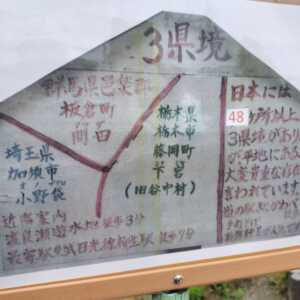 3県境
群馬県邑楽郡
板倉町
前田
埼玉県
加須市
小野袋
栃木県
栃木市
藤岡町
下宮
(旧谷中村)
近高案内
渡良瀬遊水地 徒歩3分
最寄駅 東武日光線柳生駅 徒歩7分
日本には
48ヶ所以上
3県境があり
が平地にある
大変貴重な存在
言われています